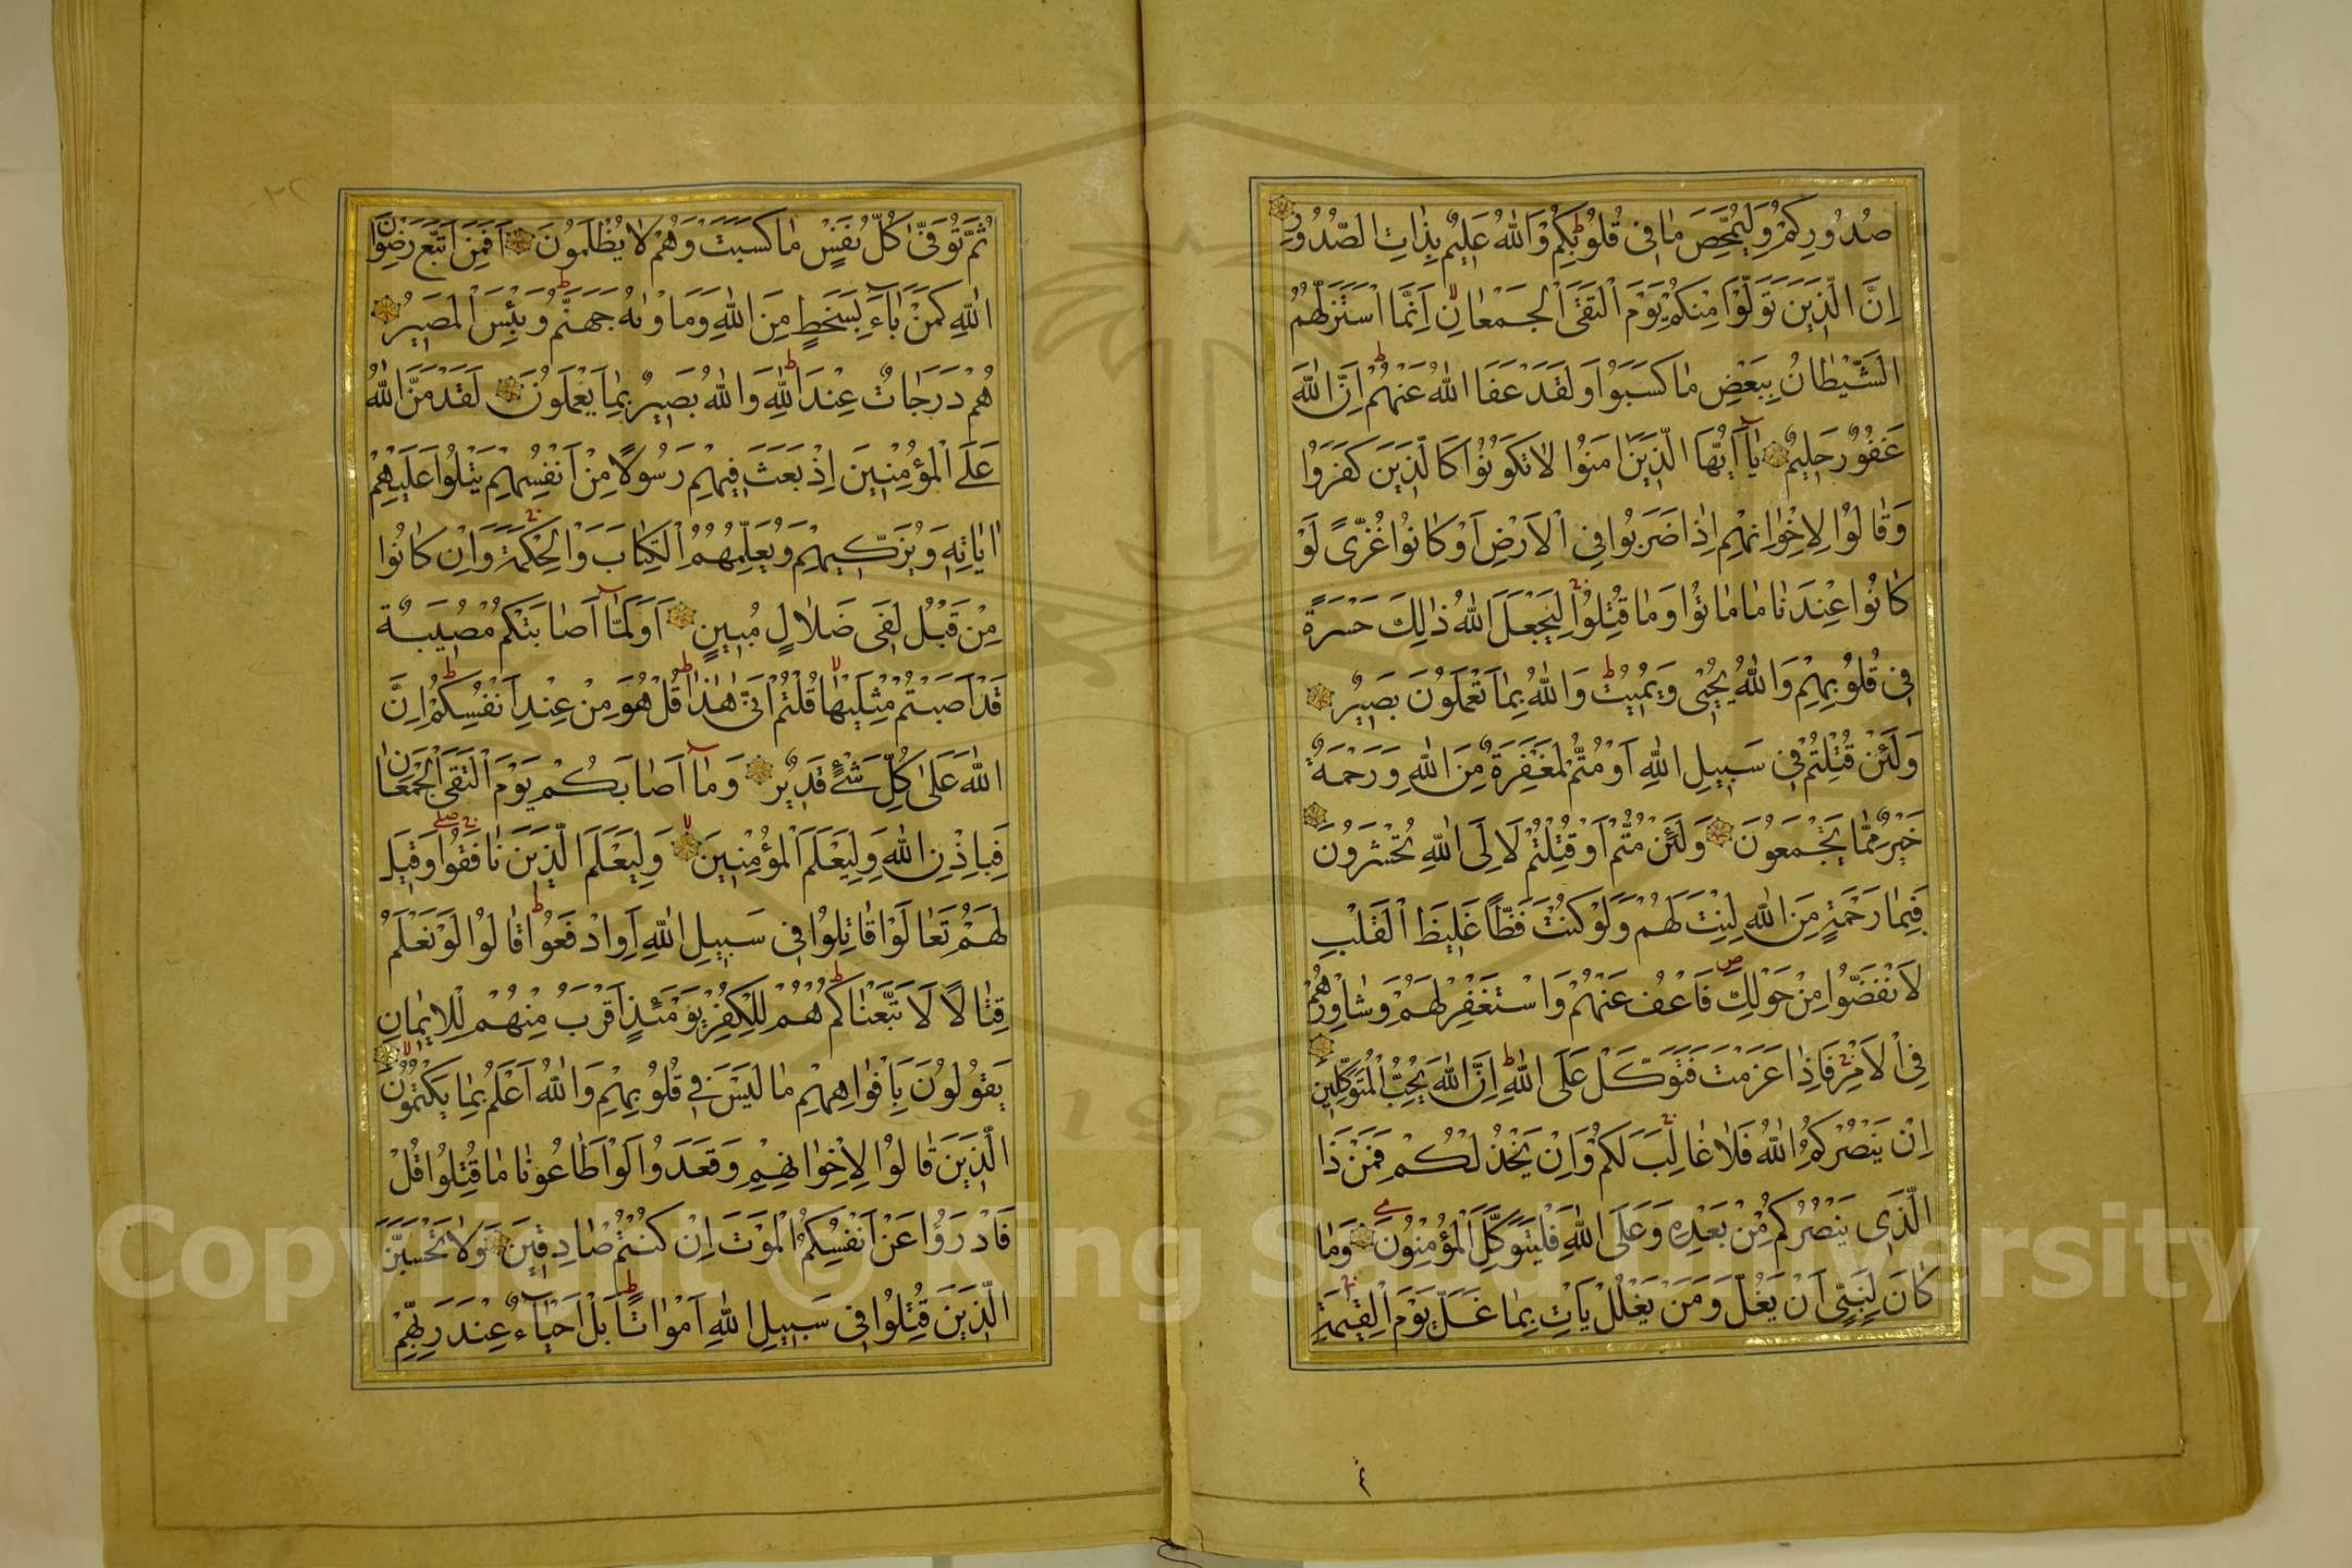 صُدُورِكُمْ وَلِيُمَحِّصَ مٰا فِى قُلُوبِكُمْ وَاللّٰهُ عَلِيمٌ بِذٰاتِ الصُّدُورِ
اِنَّ الَّذِينَ تَوَلَّوْا مِنْكُمْ يَوْمَ الْتَقَى الْجَمْعٰانِ اِنَّمَا اسْتَزَلَّهُمُ
الشَّيْطٰانُ بِبَعْضِ مٰا كَسَبُوا وَلَقَدْ عَفَا اللّٰهُ عَنْهُمْ اِنَّ اللّٰهَ
غَفُورٌ حَلِيمٌ يٰٓا اَيُّهَا الَّذِينَ اٰمَنُوا لاٰ تَكُونُوا كَالَّذِينَ كَفَرُوا
وَقٰالُوا لِاِخْوٰانِهِمْ اِذٰا ضَرَبُوا فِى الْاَرْضِ اَوْ كٰانُوا غُزًّى لَوْ
كٰانُوا عِنْدَنٰا مٰا مٰاتُوا وَمٰا قُتِلُوا لِيَجْعَلَ اللّٰهُ ذٰلِكَ حَسْرَةً
فِى قُلُوبِهِمْ وَاللّٰهُ يُحْيِى وَيُمِيتُ وَاللّٰهُ بِمٰا تَعْمَلُونَ بَصِيرٌ
وَلَئِنْ قُتِلْتُمْ فِى سَبِيلِ اللّٰهِ اَوْ مُتُّمْ لَمَغْفِرَةٌ مِنَ اللّٰهِ وَرَحْمَةٌ
خَيْرٌ مِمّٰا يَجْمَعُونَ وَلَئِنْ مُتُّمْ اَوْ قُتِلْتُمْ لَاِلَى اللّٰهِ تُحْشَرُونَ
فَبِمٰا رَحْمَةٍ مِنَ اللّٰهِ لِنْتَ لَهُمْ وَلَوْ كُنْتَ فَظًّا غَلِيظَ الْقَلْبِ
لَانْفَضُّوا مِنْ حَوْلِكَ فَاعْفُ عَنْهُمْ وَاسْتَغْفِرْ لَهُمْ وَشٰاوِرْهُمْ
فِى الْاَمْرِ فَاِذٰا عَزَمْتَ فَتَوَكَّلْ عَلَى اللّٰهِ اِنَّ اللّٰهَ يُحِبُّ الْمُتَوَكِّلِينَ
اِنْ يَنْصُرْكُمُ اللّٰهُ فَلاٰ غٰالِبَ لَكُمْ وَاِنْ يَخْذُلْكُمْ فَمَنْ ذَا
الَّذِى يَنْصُرُكُمْ مِنْ بَعْدِهِ وَعَلَى اللّٰهِ فَلْيَتَوَكَّلِ الْمُؤْمِنُونَ وَمٰا
كٰانَ لِنَبِيٍّ اَنْ يَغُلَّ وَمَنْ يَغْلُلْ يَأْتِ بِمٰا غَلَّ يَوْمَ الْقِيٰمَةِ
ثُمَّ تُوَفّٰى كُلُّ نَفْسٍ مٰا كَسَبَتْ وَهُمْ لاٰ يُظْلَمُونَ اَفَمَنِ اتَّبَعَ رِضْوٰانَ
اللّٰهِ كَمَنْ بٰآءَ بِسَخَطٍ مِنَ اللّٰهِ وَمَأْوٰيهُ جَهَنَّمُ وَبِئْسَ الْمَصِيرُ
هُمْ دَرَجٰاتٌ عِنْدَ اللّٰهِ وَاللّٰهُ بَصِيرٌ بِمٰا يَعْمَلُونَ لَقَدْ مَنَّ اللّٰهُ
عَلَى الْمُؤْمِنِينَ اِذْ بَعَثَ فِيهِمْ رَسُولًا مِنْ اَنْفُسِهِمْ يَتْلُوا عَلَيْهِمْ
اٰيٰاتِهِ وَيُزَكِّيهِمْ وَيُعَلِّمُهُمُ الْكِتٰابَ وَالْحِكْمَةَ وَاِنْ كٰانُوا
مِنْ قَبْلُ لَفِى ضَلاٰلٍ مُبِينٍ اَوَلَمّٰٓا اَصٰابَتْكُمْ مُصِيبَةٌ
قَدْ اَصَبْتُمْ مِثْلَيْهٰا قُلْتُمْ اَنّٰى هٰذٰا قُلْ هُوَ مِنْ عِنْدِ اَنْفُسِكُمْ اِنَّ
اللّٰهَ عَلٰى كُلِّ شَىْءٍ قَدِيرٌ وَمٰٓا اَصٰابَكُمْ يَوْمَ الْتَقَى الْجَمْعٰانِ
فَبِاِذْنِ اللّٰهِ وَلِيَعْلَمَ الْمُؤْمِنِينَ وَلِيَعْلَمَ الَّذِينَ نٰافَقُوا وَقِيلَ
لَهُمْ تَعٰالَوْا قٰاتِلُوا فِى سَبِيلِ اللّٰهِ اَوِ ادْفَعُوا قٰالُوا لَوْ نَعْلَمُ
قِتٰالًا لَاتَّبَعْنٰاكُمْ هُمْ لِلْكُفْرِ يَوْمَئِذٍ اَقْرَبُ مِنْهُمْ لِلْاِيمٰانِ
يَقُولُونَ بِاَفْوٰاهِهِمْ مٰا لَيْسَ فِى قُلُوبِهِمْ وَاللّٰهُ اَعْلَمُ بِمٰا يَكْتُمُونَ
الَّذِينَ قٰالُوا لِاِخْوٰانِهِمْ وَقَعَدُوا لَوْ اَطٰاعُونٰا مٰا قُتِلُوا قُلْ
فَادْرَؤُا عَنْ اَنْفُسِكُمُ الْمَوْتَ اِنْ كُنْتُمْ صٰادِقِينَ وَلاٰ تَحْسَبَنَّ
الَّذِينَ قُتِلُوا فِى سَبِيلِ اللّٰهِ اَمْوٰاتًا بَلْ اَحْيٰآءٌ عِنْدَ رَبِّهِمْ
Copyright © King Saud University
195